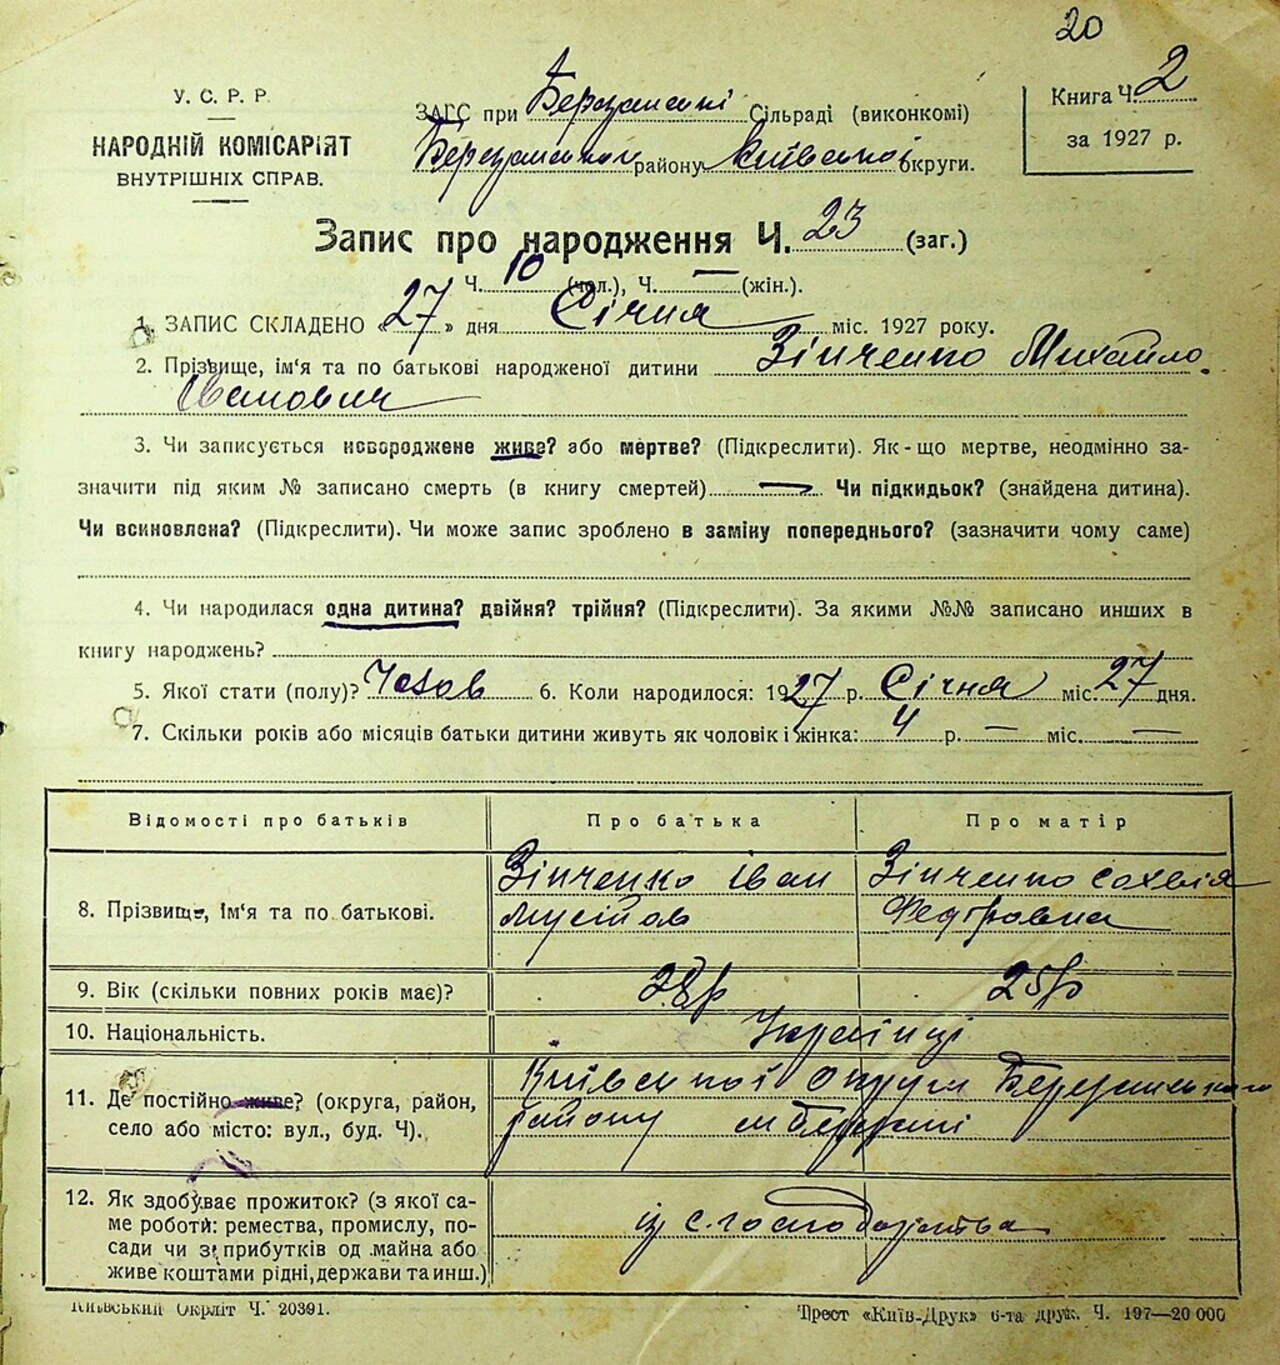 20
У. С. Р. Р.
НАРОДНІЙ КОМІСАРІЯТ
ВНУТРІШНІХ СПРАВ.
ЗАГС при Березанські Сільраді (виконкомі)
Березанського району Київської округи.
Книга Ч. 2
за 1927 р.
Запис про народження Ч. 23 (заг.)
Ч. 10 (чол.), Ч. — (жін.).
1. ЗАПИС СКЛАДЕНО «27» дня Січня міс. 1927 року.
2. Прізвище, ім'я та по батькові народженої дитини Зінченко Михайло
Іванович
3. Чи записується новороджене живе? або мертве? (Підкреслити). Як-що мертве, неодмінно за-
значити під яким № записано смерть (в книгу смертей) — Чи підкидьок? (знайдена дитина).
Чи всиновлена? (Підкреслити). Чи може запис зроблено в заміну попереднього? (зазначити чому саме)
4. Чи народилася одна дитина? двійня? трійня? (Підкреслити). За якими №№ записано инших в
книгу народжень?
5. Якої стати (полу)? Чолов 6. Коли народилося: 1927 р. Січня міс. 27 дня.
7. Скільки років або місяців батьки дитини живуть як чоловік і жінка: 4 р. — міс. —
Відомості про батьків Про батька Про матір
8. Прізвище, ім'я та по батькові. Зінченко Іван Зінченко Сохвія
Мусійов Федоровна
9. Вік (скільки повних років має)? 28р 25р
10. Національність. Українці
11. Де постійно живе? (округа, район, Київської округи Березанського
село або місто: вул., буд. Ч). району м Березані
12. Як здобуває прожиток? (з якої са-
ме роботи: ремества, промислу, по- із с.господарства
сади чи з прибутків од майна або
живе коштами рідні, держави та инш.)
Київський Окрліт Ч. 20391.
Трест «Київ-Друк» 6-та друк. Ч. 197—20 000